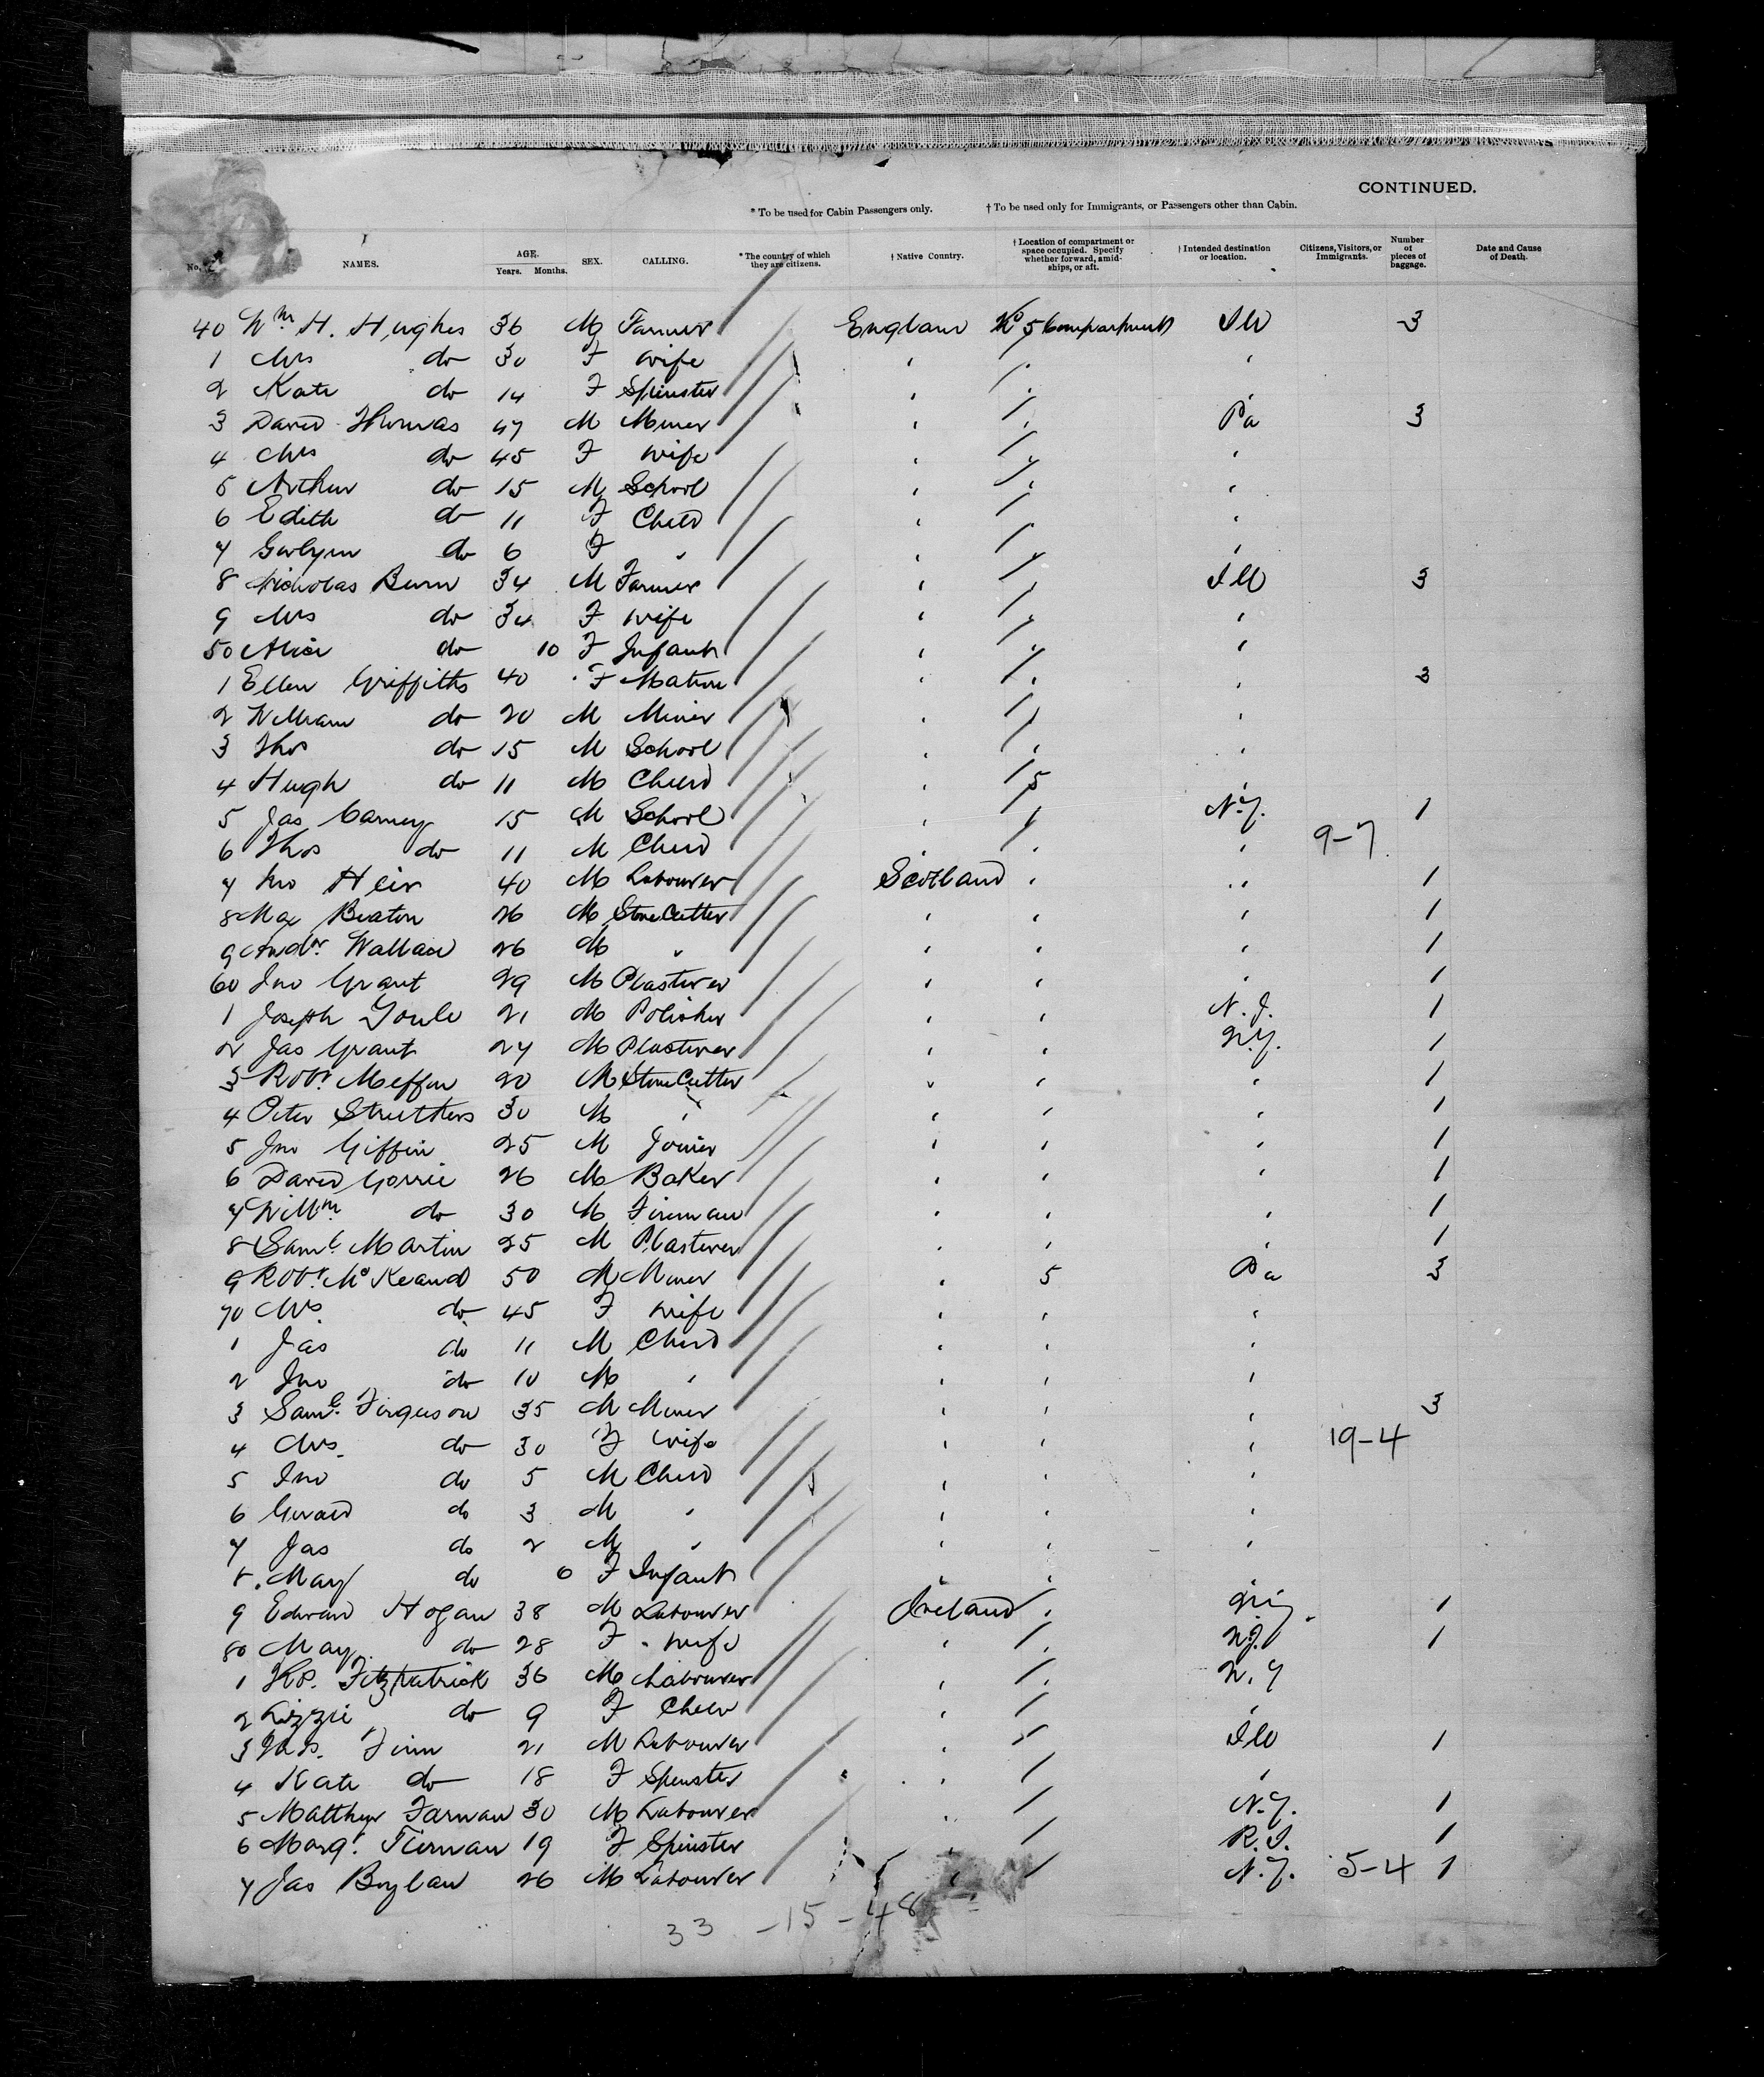 CONTINUED.
* To be used for Cabin Passengers only. † To be used only for Immigrants, or Passengers other than Cabin.
No. NAMES. AGE. Years. Months. SEX. CALLING. * The country of which they are citizens. † Native Country. † Location of compartment or space occupied. Specify whether forward, amidships, or aft. † Intended destination or location. Citizens, Visitors, or Immigrants. Number of pieces of baggage. Date and Cause of Death.
40 Wm H. Hughes 36 M Farmer England No 5 Compartment Ill 3
1 Mrs do 30 F wife
2 Kate do 14 F Spinster
3 David Thomas 47 M Miner Pa 3
4 Mrs do 45 F wife
5 Arthur do 15 M School
6 Edith do 11 F Child
7 Gwlym do 6 F "
8 Nicholas Bunn 34 M Farmer Ill 3
9 Mrs do 34 F wife
50 Alice do 10 F Infant
1 Ellen Griffiths 40 F Matron 3
2 William do 20 M Miner
3 Thos do 15 M School
4 Hugh do 11 M Child 5
5 Jas Carney 15 M School N.Y. 1
6 Thos do 11 M Child 9-7
7 Jno Heir 40 M Labourer Scotland 1
8 Max Beaton 26 M Stone Cutter 1
9 Andw Wallace 26 M " 1
60 Jno Grant 29 M Plasterer 1
1 Joseph Youle 21 M Polisher N.J. 1
2 Jas Grant 24 M Plasterer N.Y. 1
3 Robt Meffen 20 M Stone Cutter 1
4 Peter Struthers 30 M " 1
5 Jno Giffin 25 M Joiner 1
6 David Gorrie 26 M Baker 1
7 Willm do 30 M Fireman 1
8 Saml Martin 25 M Plasterer 1
9 Robt McKeand 50 M Miner 5 Pa 3
70 Mrs do 45 F wife
1 Jas do 11 M Child
2 Jno do 10 M "
3 Saml Ferguson 35 M Miner 3
4 Mrs do 30 F wife 19-4
5 Jno do 5 M Child
6 Gerald do 3 M "
7 Jas do 2 M "
8 May do 6 F Infant
9 Edward Hogan 38 M Labourer Ireland 1
80 May do 28 F wife N.J. 1
1 Fitzpatrick 36 M Labourer N.Y
2 Lizzie do 9 F Child
3 Finn 21 M Labourer Ill 1
4 Kate do 18 F Spinster
5 Matthew Farnan 30 M Labourer N.Y. 1
6 Margt Tiernan 19 F Spinster R.I. 1
7 Jas Boylan 26 M Labourer N.Y. 5-4 1
33 -15-48